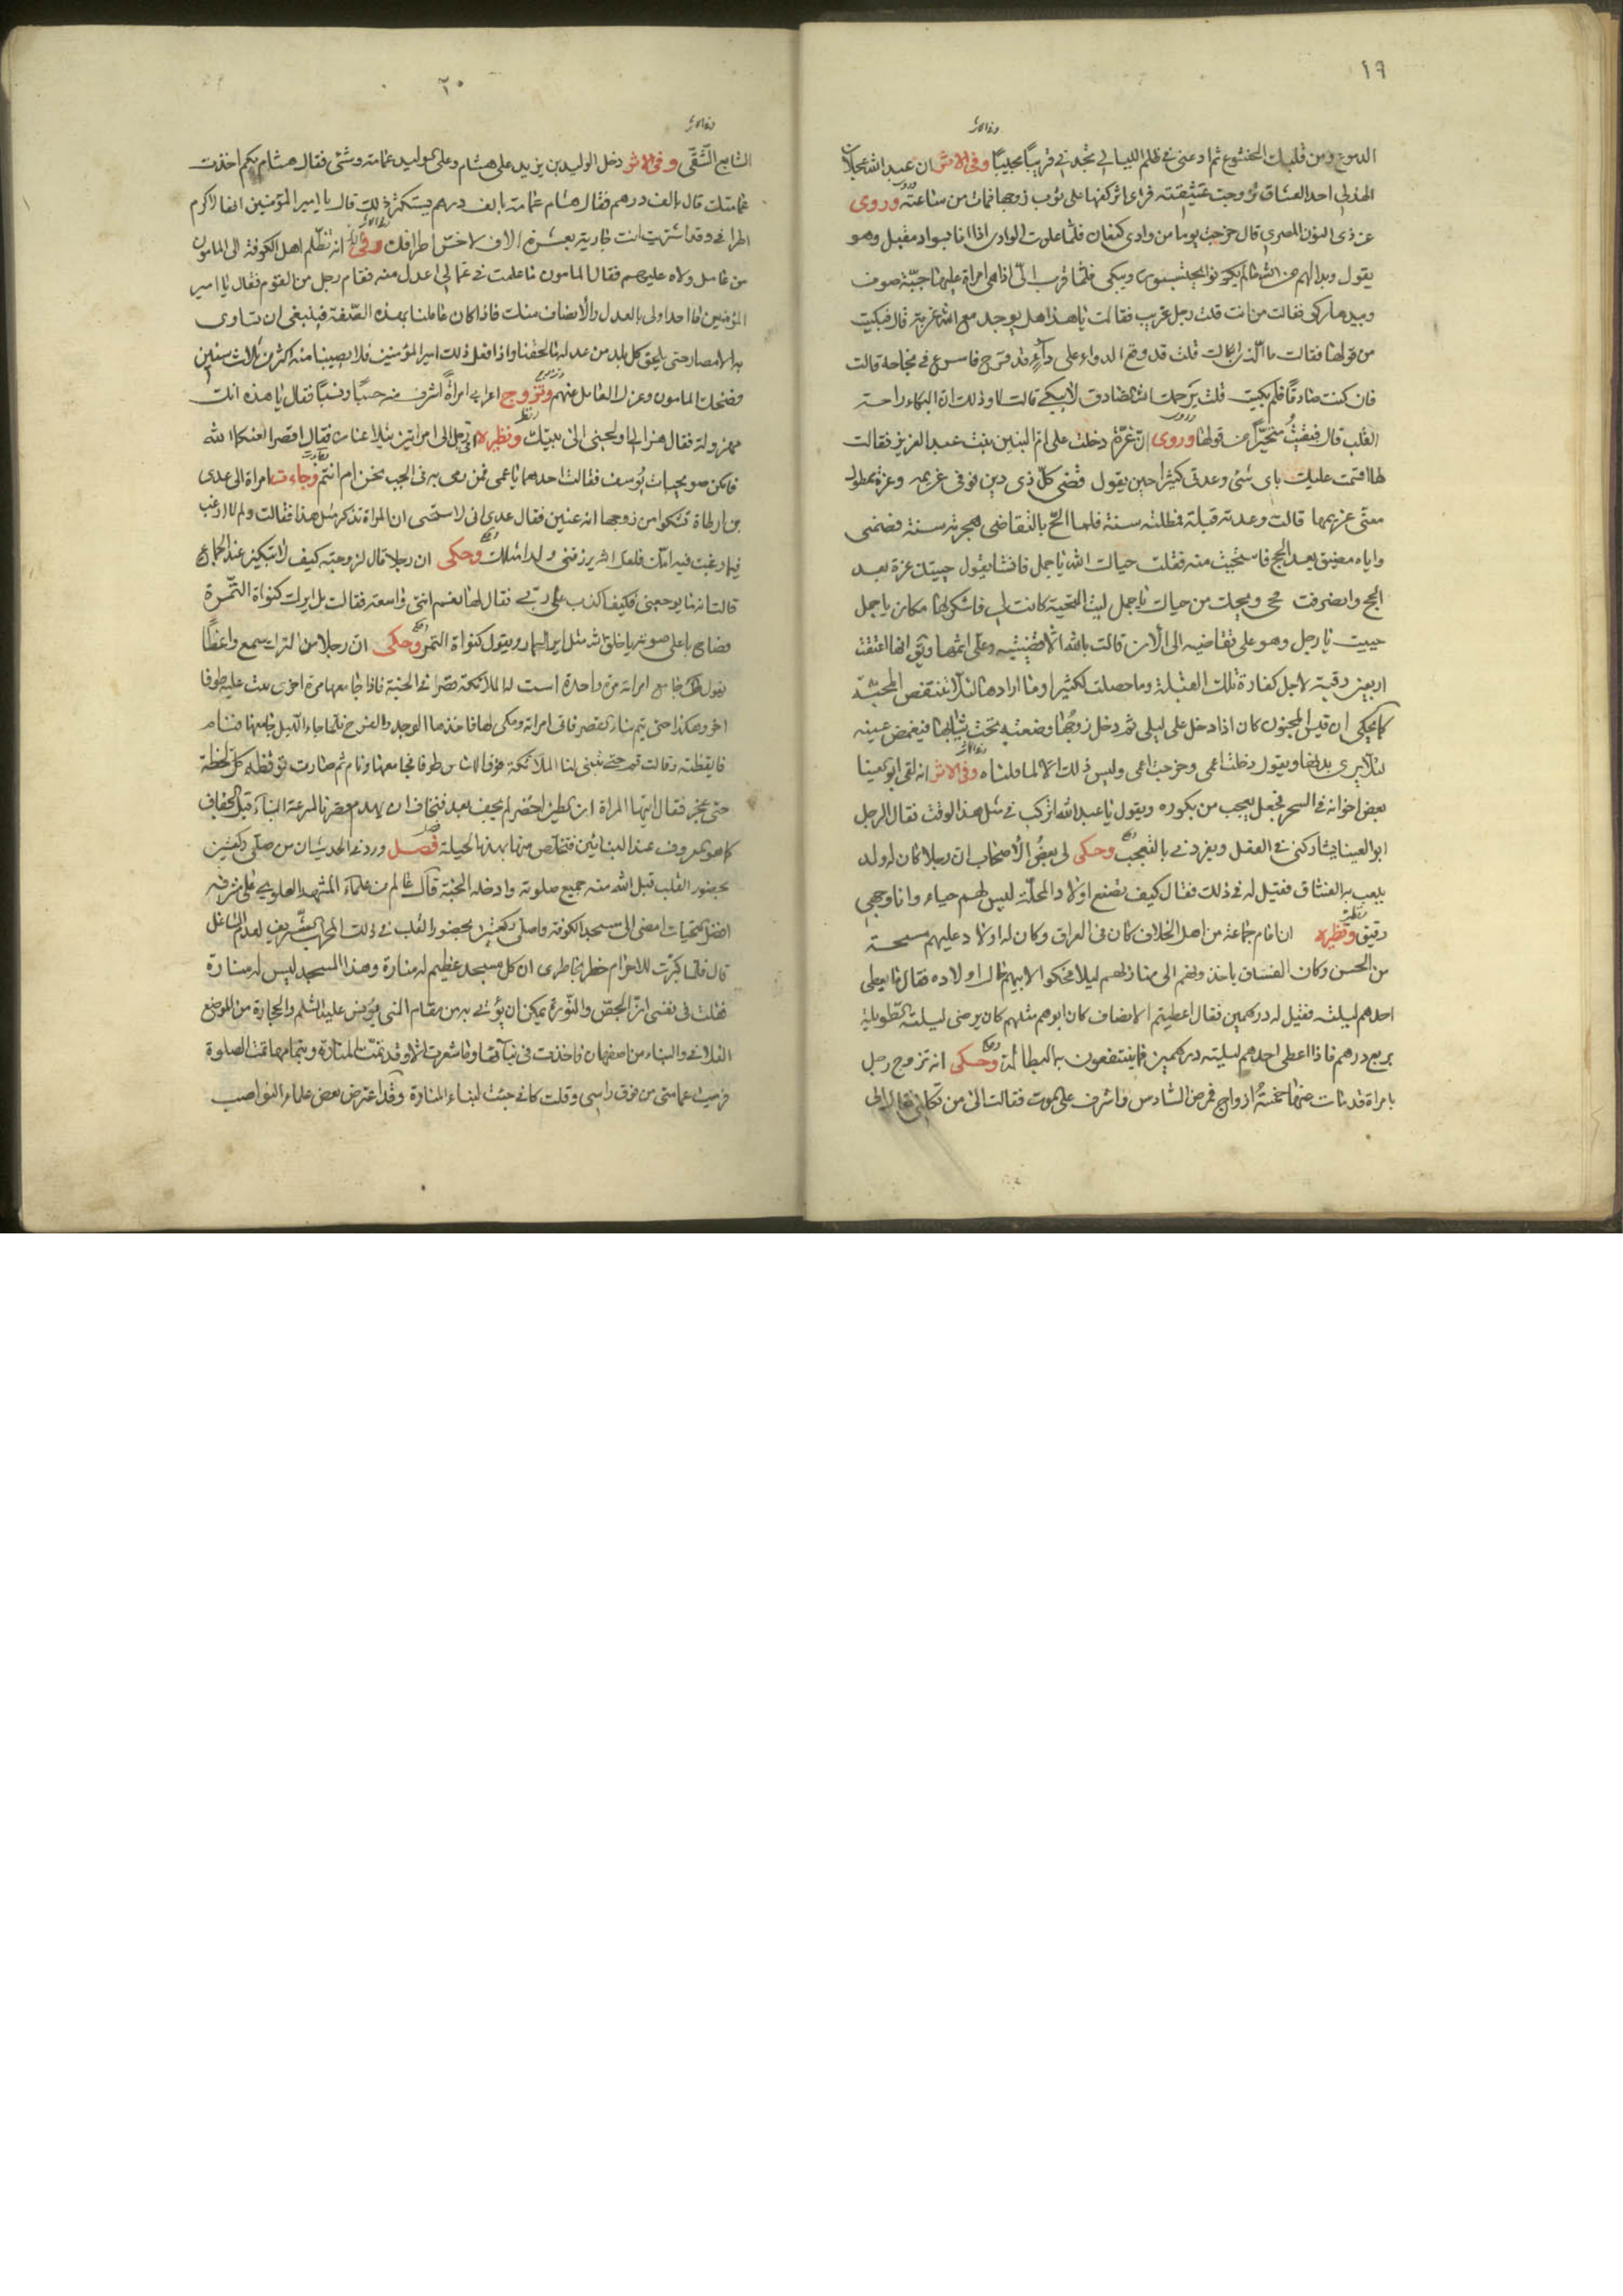 ١٩
وفى الاثر
الدموع ومن قلبك الخشوع ثم ادعنى فى ظلم الليالى تجدنى قريبًا مجيبًا وفى الاثر ان عبد الله عجلان
الهذلى احد العشاق تزوجت عشيقته فراى اثر كفها على ثوب زوجها فمات من ساعته وروى
عن ذى النون المصرى قال خرجت يوما من وادى كنعان فلما علوت الوادى اذا انا بسواد مقبل وهو
يقول وبدا لهم من الله ما لم يكونوا يحتسبون ويبكى فلما قرب الىّ اذا هى امراة عليها جبّة صوف
وبيدها ركوة فقالت من انت قلت رجل غريب فقالت يا هذا هل يوجد مع الله غربة قال فبكيت
من قولها فقالت ما الذى ابكاك قلت قد وقع الدواء على داء قد قرح فاسرع فى نجاحه قالت
فان كنت صادقًا فلم بكيت قلت يرحمك الله الصادق لا يبكى قالت لا وذلك ان البكاء راحة
القلب قال فبقيتُ متحيّرًا من قولها وروى ان عَزّة دخلت على ام البنين بنت عبد العزيز فقالت
لها اقسمت عليك باى شئ وعدتى كثيرا حين يقول قضى كلّ ذى دين فوفى غريمه وعزة ممطول
معنّى غريمها قالت وعدته قبلة فمطلته سنة فلما الحّ بالتقاضى هجرته سنة فضمنى
واياه مضيق بعد الحج فاستحييت منه فقلت حياك الله يا جمل فانشا يقول حييتك عزة بعد
الحج وانصرفت فحى ويحك من حياك يا جمل ليت التحية كانت لى فاشكرلها مكان يا جمل
حييت يا رجل وهو على تقاضيه الى الان قالت بالله الّا قضيتيه وعلىّ اثمها وروى انها اعتقت
اربعين رقبة لاجل كفارة تلك القبلة وما حصلت لكثير وما ارادها لئلا ينتقض المحبّة
كما يحكى ان قيس المجنون كان اذا دخل على ليلى ثم دخل زوجُها وضعته تحت ثيابها فيغمض عينيه
لئلا يرى بدنها ويقول دخلت اعمى وخرجت اعمى وليس ذلك الا لما قلناه وفى الاثر انه لقى ابو العينا
بعض اخوانه فى السحر فجعل يعجب من بكوره ويقول يا عبد الله اتركب فى مثل هذا الوقت فقال الرجل
ابو العينا يشاركنى فى الفعل ويفردنى بالتعجب وحكى لى بعضُ الأصحاب ان رجلا كان له ولد
يلعب به الفسّاق فقيل له فى ذلك فقال كيف نصنع اولاد المحلّة ليس لهم حياء وانا وجهى
رقيق ونظيره ان امام جماعة من اهل الخلاف كان فى العراق وكان له اولاد عليهم مسحة
من الحسن وكان الفساق ياخذونهم الى منازلهم ليلا فحكوا لابيهم قال اولاده فقال ما يعطى
احدهم ليلته فقيل له درهمين فقال اعطيتم الانصاف كان ابوهم مثلهم كان يرضى ليلته الطويلة
بربع درهم فاذا اعطى احدهم ليلته درهمين فما ينتفعون بالبطالة وحكى انه تزوج رجل
بامراة قد مات عنها خمسةُ ازواج فمرض السادس فاشرف على الموت فقالت الى من تكلنى فقال الى
٢٠
وفى الاثر
السابع الشقى وفى الاثر دخل الوليد بن يزيد على هشام وعلى الوليد عمامة وشى فقال هشام بكم اخذت
عمامتك قال بالف درهم فقال هشام عمامة بالف درهم يستكثر ذلك قال يا امير المؤمنين انها لاكرم
اطرافى وقد اشتريت انت جارية بعشرة الاف لاخسّ اطرافك وفى الاثر انه تظلّم اهل الكوفة الى المامون
من عامل ولاه عليهم فقال المامون ما علمت فى عمالى اعدل منه فقام رجل من القوم فقال يا امير
المؤمنين ما احد اولى بالعدل والأنصاف منك فاذا كان عاملنا بهذه الصّفة فينبغى ان تساوى
به الامصار حتى يلحق كل بلد من عدله ما لحقنا واذا فعل ذلك امير المؤمنين فلا يصيبنا منه اكثر من ثلاث سنين
فضحك المامون وعزل العامل عنهم وتزوج اعرابى امراةً اشرف منه حسبًا ونسبًا فقال يا هذه انك
مهزولة فقال هزالى اولجنى الى بيتك ونظيره اتى رجل الى امراتين فقال اقصرا لعنكما الله
فانكن صويحبات يُوسف فقالت احداهما يا عمى فمن رمى به فى الجب نحن ام انتم وجاءت امراة الى عدى
بن ارطاة تشكو من زوجها انه عنين فقال عدى انى لاستحى ان المراة تذكر مثل هذا فقالت ولم لا ارغب
فيما رغبت فيه امك فلعل الله يرزقنى ولدا مثلك وحكى ان رجلا قال لزوجته كيف لا تبكين عند الجماع
قالت انه ما يوجعنى فكيف اكذب على ربى فقال لها نعم انتى واسعة فقالت بل ايرك كنواة التّمرة
فصاح باعلى صوته يا خلق الله مثل اير الحمار ويقول كنواة التمر وحكى ان رجلا من الترك سمع واعظًا
يقول من جامع امراته مرة واحدة اسست له الملائكة قصرا فى الجنة فاذا جامعها مرة اخرى بنت عليه طوفا
اخر وهكذا حتى يتم بناء القصر فاتى امراته وحكى لها فاخذها الوجد والفرح فلما جاء الليل جامعها فنام
فايقظته وقالت قم حتى تبنى لنا الملائكة فوق الاساس طوفا فجامعها ونام ثم صارت توقظه كل لحظة
حتى عجز فقال ايتها المراة ان الطين اخضر لم يجف بعد فنخاف ان يهدم قصرنا لسرعة البناء قبل الجفاف
كما هو المعروف عند البنائين فتخلّص منها بهذه الحيلة فصل ورد فى الحديث ان من صلّى ركعتين
بحضور القلب قبل الله منه جميع صلوته وادخله الجنة قال عالم من علماء المشهد العلوى على مشرفه
افضل التحيات امضى الى مسجد الكوفة واصلّى ركعتين بحضور القلب فى ذلك المحراب الشريف لعدم الشاغل
قال فلما كبّرت للاحرام خطر بخاطرى ان كل مسجد عظيم له منارة وهذا المسجد ليس له منارة
فقلت فى نفسى انّ الجصّ والنّورة يمكن ان يؤتى به من مقام النبى يونس عليه السّلم والحجارة من الموضع
الفلانى والبناء من اصفهان فاخذت فى بنائها وما شعرت الّا وقد تمّت المنارة وبتمامها تمّت الصلوة
فرميت عمامتى من فوق راسى وقلت كانى جئت لبناء المنارة وقد اعترض بعض علماء النواصب